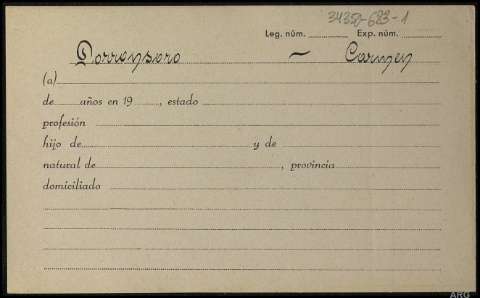 34350-683-1
Leg. núm. Exp. núm.
Dorronsoro ~ Carmen
(a)
de años en 19 , estado
profesión
hijo de y de
natural de , provincia
domiciliado
ARG